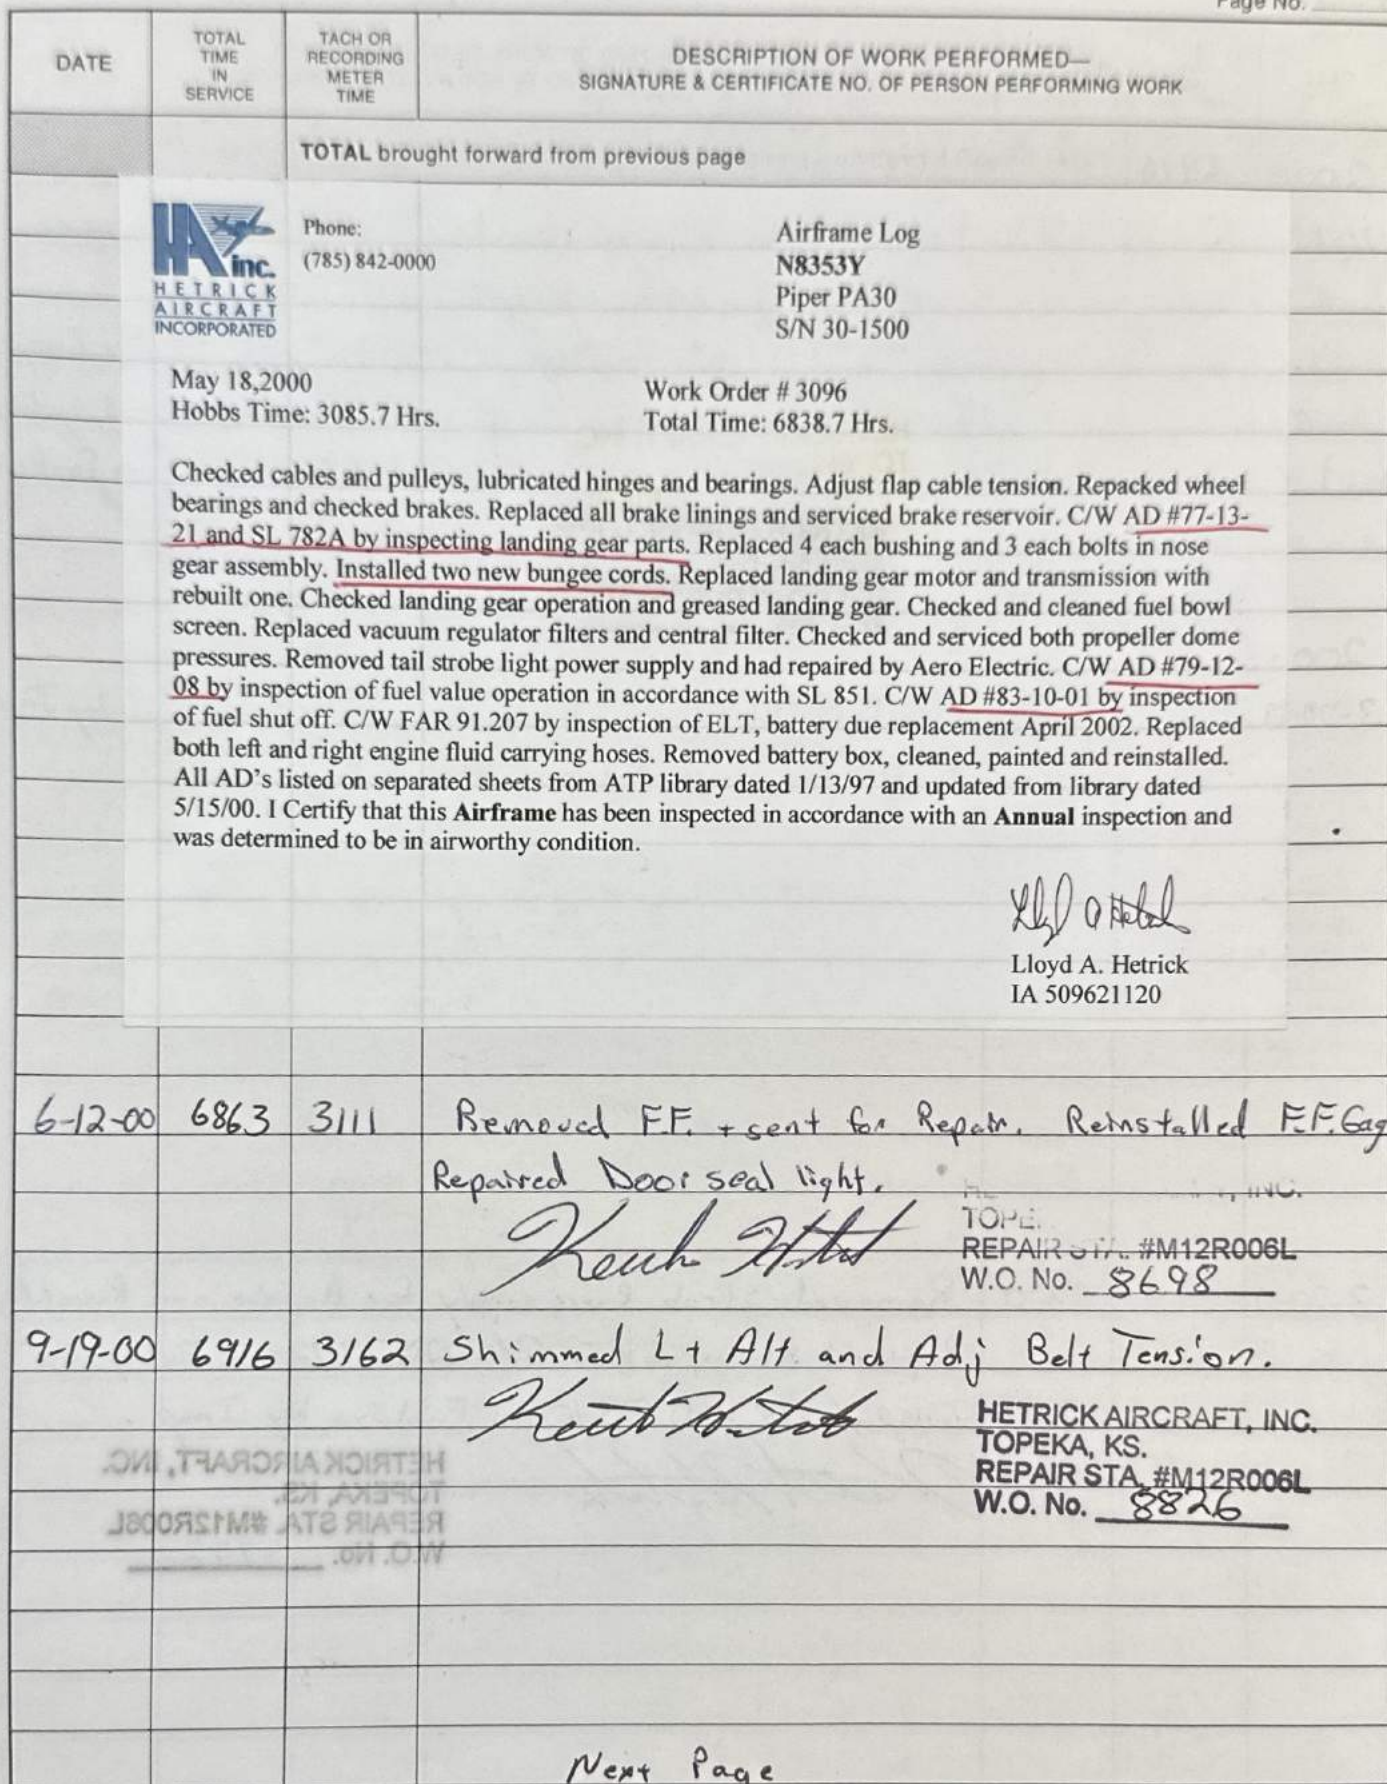 Page No.
DATE
TOTAL
TIME
IN
SERVICE
TACH OR
RECORDING
METER
TIME
DESCRIPTION OF WORK PERFORMED—
SIGNATURE & CERTIFICATE NO. OF PERSON PERFORMING WORK
TOTAL brought forward from previous page
HA inc.
HETRICK
AIRCRAFT
INCORPORATED
Phone:
(785) 842-0000
Airframe Log
N8353Y
Piper PA30
S/N 30-1500
May 18,2000
Hobbs Time: 3085.7 Hrs.
Work Order # 3096
Total Time: 6838.7 Hrs.
Checked cables and pulleys, lubricated hinges and bearings. Adjust flap cable tension. Repacked wheel
bearings and checked brakes. Replaced all brake linings and serviced brake reservoir. C/W AD #77-13-
21 and SL 782A by inspecting landing gear parts. Replaced 4 each bushing and 3 each bolts in nose
gear assembly. Installed two new bungee cords. Replaced landing gear motor and transmission with
rebuilt one. Checked landing gear operation and greased landing gear. Checked and cleaned fuel bowl
screen. Replaced vacuum regulator filters and central filter. Checked and serviced both propeller dome
pressures. Removed tail strobe light power supply and had repaired by Aero Electric. C/W AD #79-12-
08 by inspection of fuel value operation in accordance with SL 851. C/W AD #83-10-01 by inspection
of fuel shut off. C/W FAR 91.207 by inspection of ELT, battery due replacement April 2002. Replaced
both left and right engine fluid carrying hoses. Removed battery box, cleaned, painted and reinstalled.
All AD's listed on separated sheets from ATP library dated 1/13/97 and updated from library dated
5/15/00. I Certify that this Airframe has been inspected in accordance with an Annual inspection and
was determined to be in airworthy condition.
Lloyd A. Hetrick
IA 509621120
6-12-00 6863 3111 Removed F.F. + sent for Repair. Reinstalled F.F. Gag
Repaired Door seal light.
INC.
REPAIR STA. #M12R006L
W.O. No. 8698
9-19-00 6916 3162 Shimmed Lt Alt and Adj Belt Tension.
HETRICK AIRCRAFT, INC.
TOPEKA, KS.
REPAIR STA. #M12R006L
W.O. No. 8826
HETRICK AIRCRAFT, INC.
TOPEKA, KS.
REPAIR STA. #M12R006L
W.O. No.
Next Page